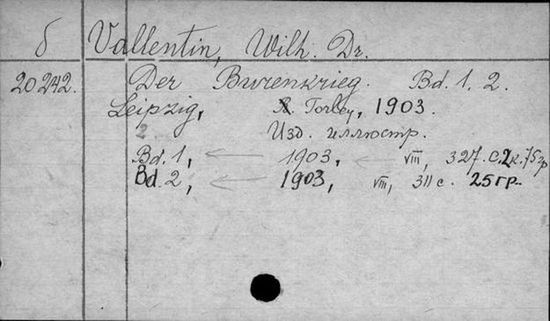 δ Vallentin, Wilh. Dr.
20242. Der Burenkrieg. Bd. 1. 2.
Leipzig, Torley, 1903.
2 Изд. иллюстр.
Bd. 1, 1903, VIII, 327. с. 2к. 75гр
Bd. 2, 1903, VIII, 311 с. 25гр.